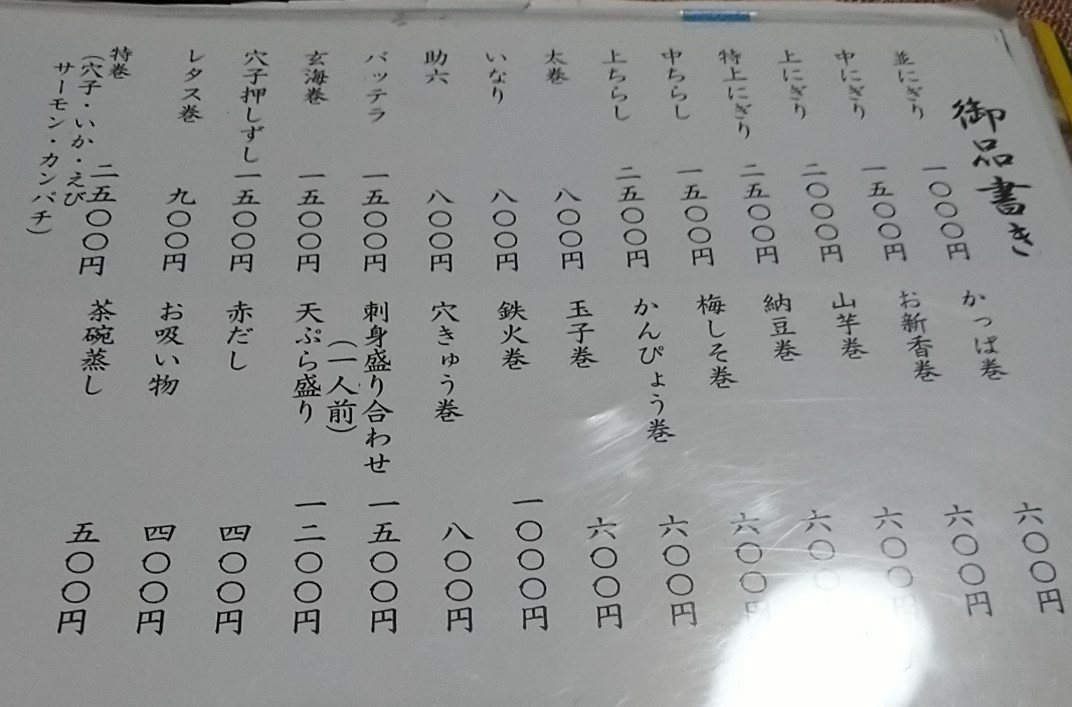 御品書き
並にぎり 一〇〇〇円
中にぎり 一五〇〇円
上にぎり 二〇〇〇円
特上にぎり 二五〇〇円
中ちらし 一五〇〇円
上ちらし 二五〇〇円
太巻 八〇〇円
いなり 八〇〇円
助六 八〇〇円
バッテラ 一五〇〇円
玄海巻 一五〇〇円
穴子押しずし 一五〇〇円
レタス巻 九〇〇円
特巻 二五〇〇円
（穴子・いか・えび
サーモン・カンパチ）
かっぱ巻 六〇〇円
お新香巻 六〇〇円
山芋巻 六〇〇円
納豆巻 六〇〇円
梅しそ巻 六〇〇円
かんぴょう巻 六〇〇円
玉子巻 六〇〇円
鉄火巻 一〇〇〇円
穴きゅう巻 八〇〇円
刺身盛り合わせ 一五〇〇円
（一人前）
天ぷら盛り 一二〇〇円
赤だし 四〇〇円
お吸い物 四〇〇円
茶碗蒸し 五〇〇円